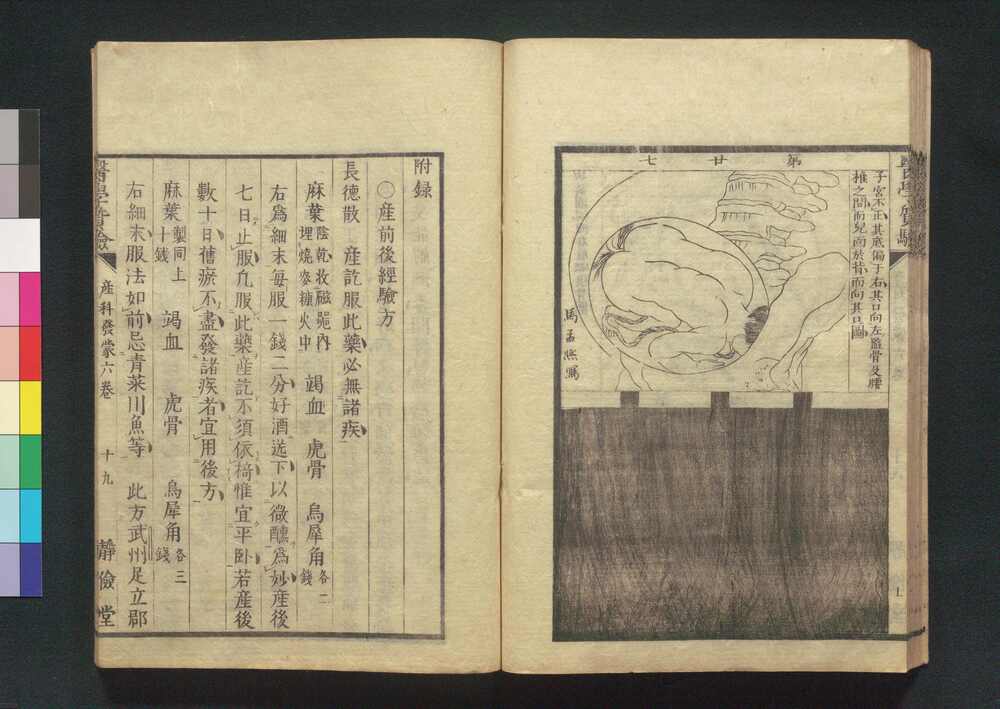 第廿七
子宮不正其底偏于右其口向左監骨及腰
椎之間而兒面於背而向其口圖
馬孟熈鷹
附録
〇產前後經驗方
長德散 產訖服此藥必無諸疾
麻葉陰乾收磁器內埋燒麥糠火中 竭血 虎骨 烏犀角各二錢
右爲細末每服一錢二分好酒送下以微醺爲妙產後
七日止服凡服此藥產訖不須依椅惟宜平臥若產後
數十日舊瘀不盡發諸疾者宜用後方
麻葉製同上十錢 竭血 虎骨 烏犀角各三錢
右細末服法如前忌青菜川魚等 此方武州足立郡
醫學質驗 產科發蒙六卷 十九 靜儉堂